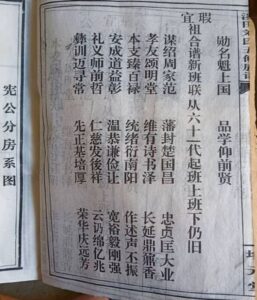 勋名魁上国 品学仰前贤
瑕宜祖合谱新班联从六十一代起班上班下仍旧
谋绍周家范 藩封楚国昌 忠贞匡大业
孝友颂明堂 维有诗书泽 长延鼎鼐香
本支臻百禄 统绪衍南阳 作述声丕振
安成道益彰 温恭谦俭让 宽裕毅刚强
礼义师前哲 仁慈发後祥 云礽绵亿兆
彝训迈寻常 先正基培厚 荣华庆远方
宪公分房系图